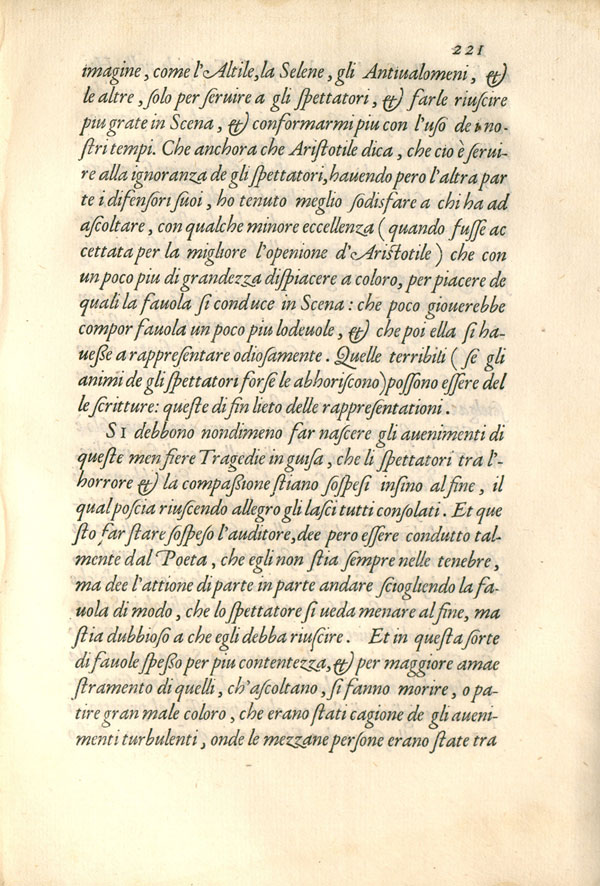 221
imagine, come l'Altile, la Selene, gli Antiualomeni, &
le altre, solo per seruire a gli spettatori, & farle riuscire
piu grate in Scena, & conformarmi piu con l'uso de i no-
stri tempi. Che anchora che Aristotile dica, che cio è serui-
re alla ignoranza de gli spettatori, hauendo pero l'altra par
te i difensori suoi, ho tenuto meglio sodisfare a chi ha ad
ascoltare, con qualche minore eccellenza (quando fusse ac
cettata per la migliore l'openione d'Aristotile) che con
un poco piu di grandezza dispiacere a coloro, per piacere de
quali la fauola si conduce in Scena: che poco giouerebbe
compor fauola un poco piu lodeuole, & che poi ella si ha-
ueße a rappresentare odiosamente. Quelle terribili (se gli
animi de gli spettatori forse le abhoriscono) possono essere del
le scritture: queste di fin lieto delle rappresentationi.
SI debbono nondimeno far nascere gli auenimenti di
queste men fiere Tragedie in guisa, che li spettatori tra l'-
horrore & la compaßione stiano sospesi insino al fine, il
qual poscia riuscendo allegro gli lasci tutti consolati. Et que
sto far stare sospeso l'auditore, dee pero essere condutto tal-
mente dal Poeta, che egli non stia sempre nelle tenebre,
ma dee l'attione di parte in parte andare sciogliendo la fa-
uola di modo, che lo spettatore si ueda menare al fine, ma
stia dubbioso a che egli debba riuscire. Et in questa sorte
di fauole speßo per piu contentezza, & per maggiore amae
stramento di quelli, ch'ascoltano, si fanno morire, o pa-
tire gran male coloro, che erano stati cagione de gli aueni-
menti turbulenti, onde le mezzane persone erano state tra